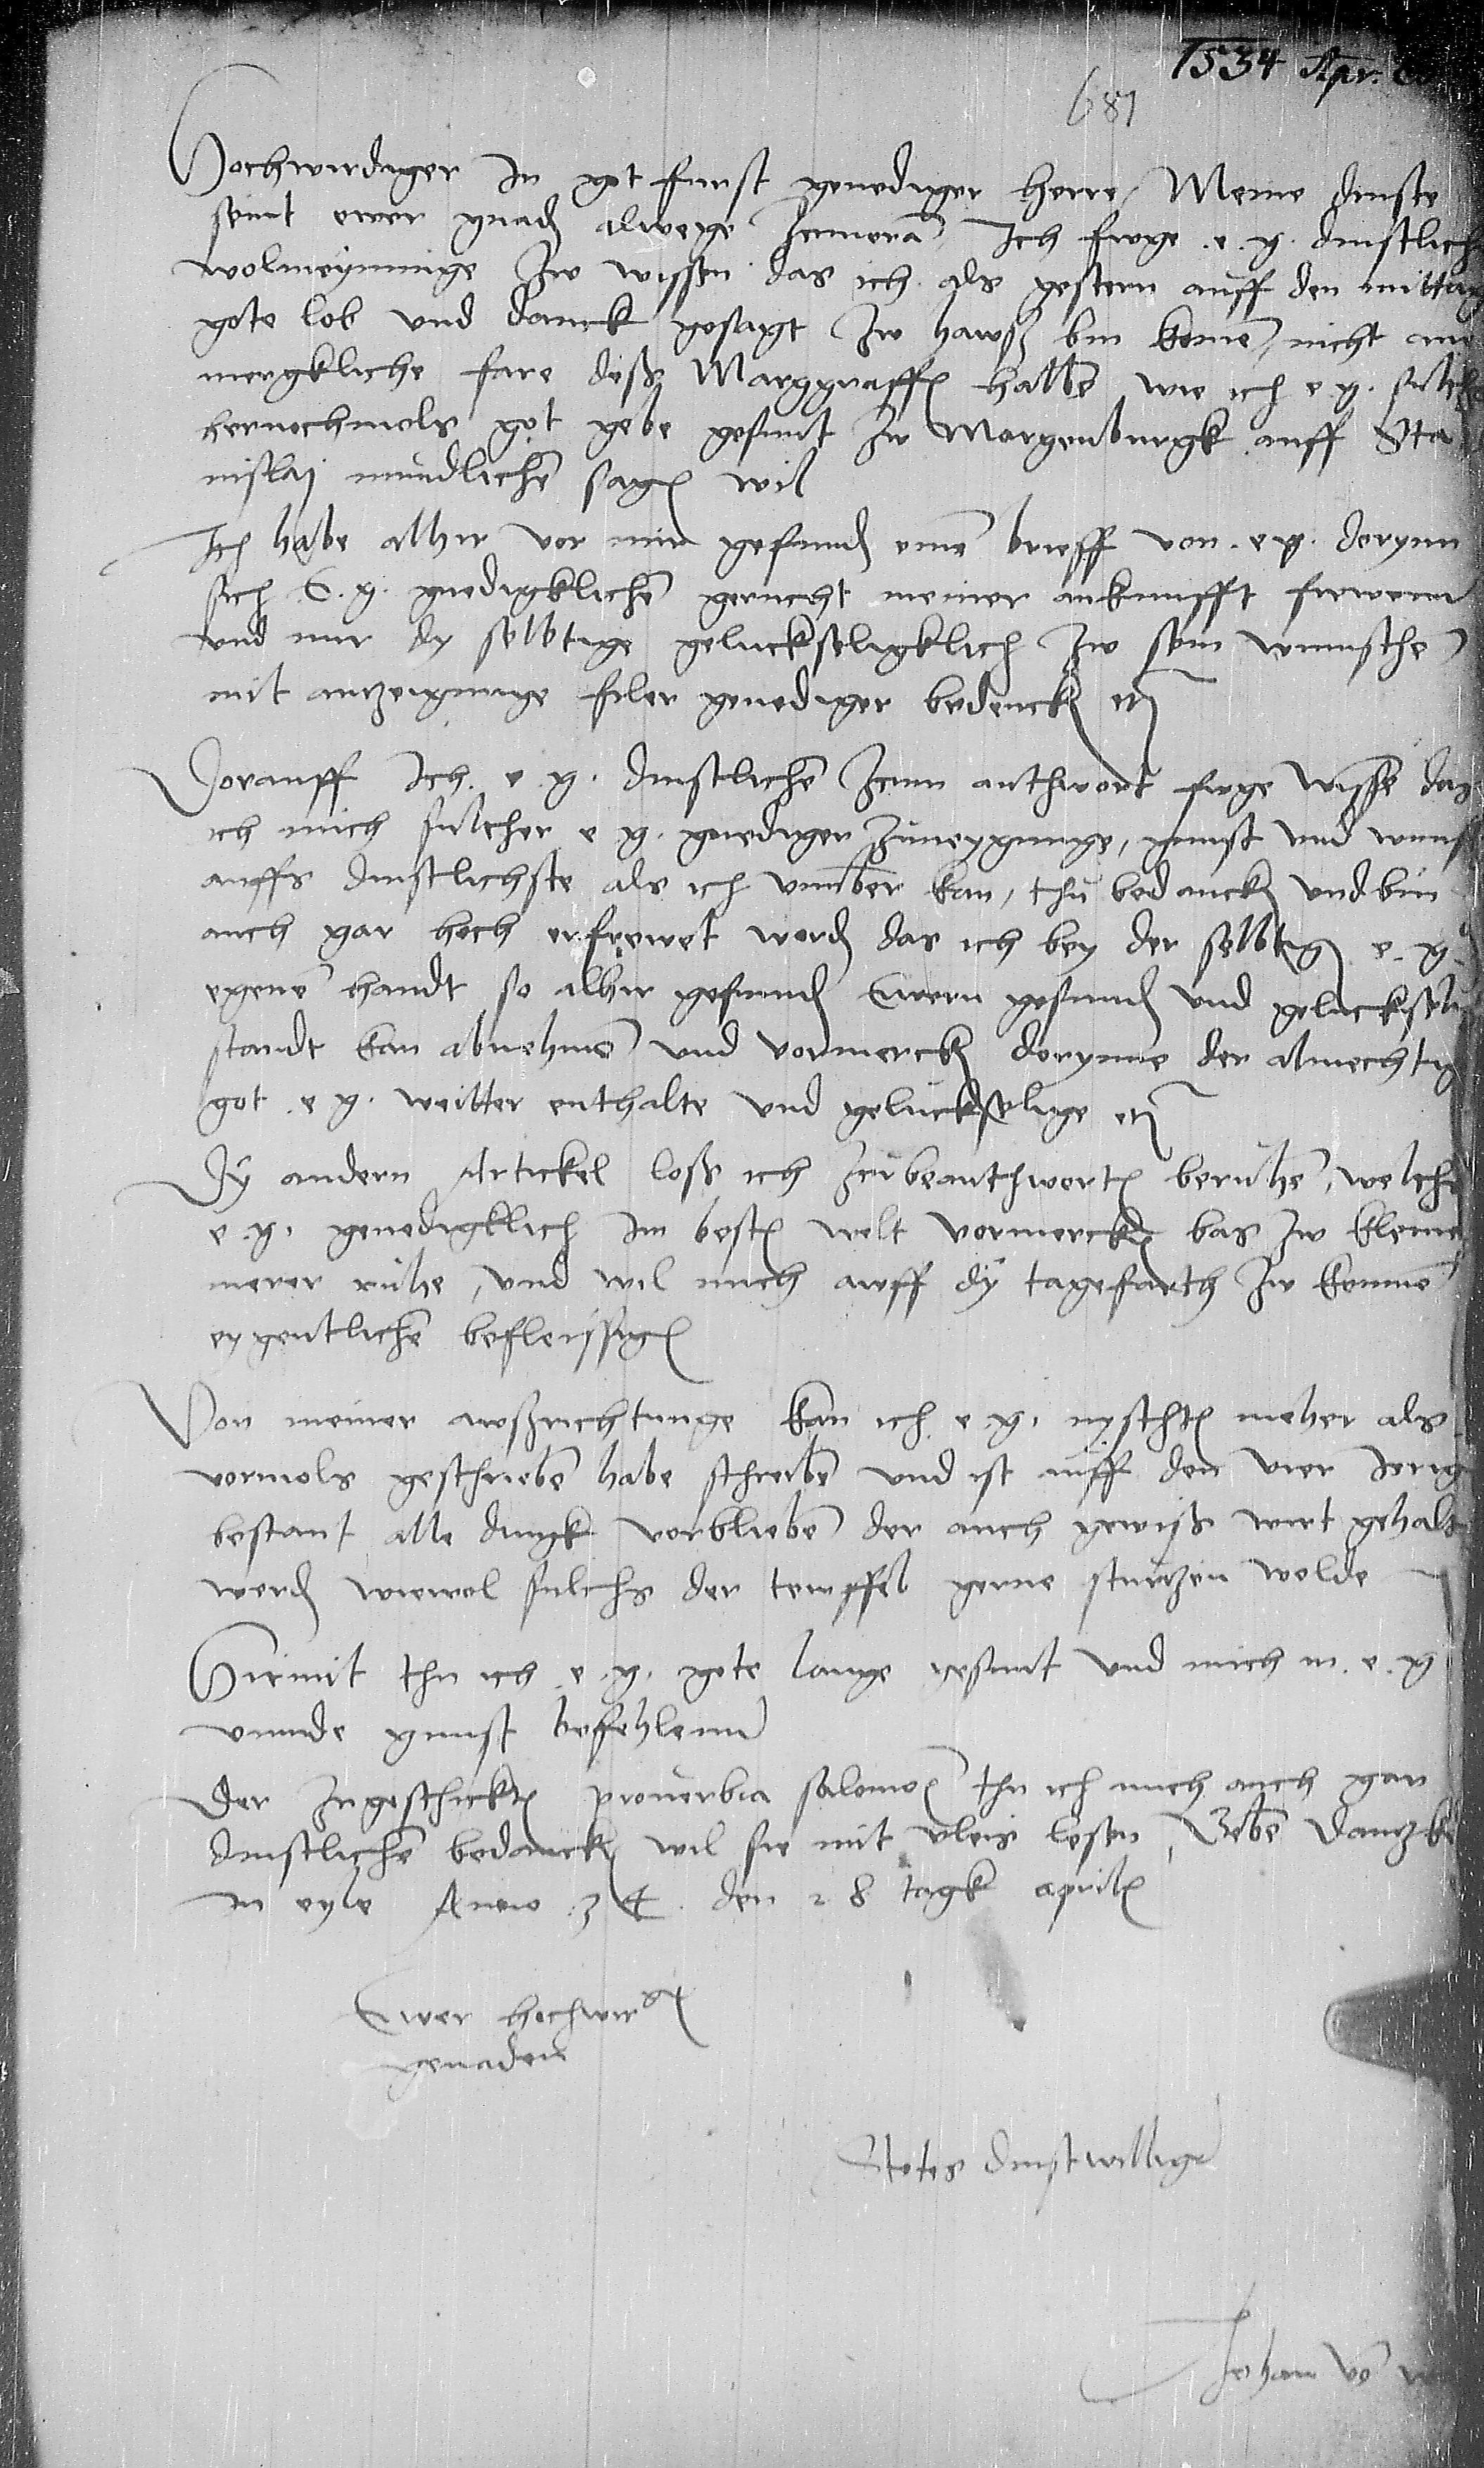 1534 Apr.
681
Hochwirdiger in got furst genediger herre, Meine dinste
seint ewer gnaden alwege zcuvorā Ich fuge e. g. dinstlich
wolmeynunge zw wissen das ich als gestern auff den mittag
gote lob und danck gesagt zw hawß bin komē, nicht ane
mergkliche fare deß Marggraffen halbē wie ich e g. sulchs
hernochmols got gebe gesunt zw Margenburgk auff Sta
nislai mundlichē sagen wil
Ich habe alhir vor mir gefunden einē brieff von e g. dorynn
sich E. g. gnedigklichē gerucht meiner ankunfft frewenn
und mir dy selbtige geluckseligklich zw sein wunschē
mit anzeigunge filer genediger bedencken etc
Dorauff Ich e. g. dinstlichē zcum anthwort fuge wissē das
ich mich sulcher e g. genediger zuneygunge, gunst und wunsch
auffs dinstlichste als ich ummer kan, thu bedancken und bin
auch gar hoch erfrewet worden das ich bey der selbtigen e. g.
egenē handt so alhir gefunden Ewern gesunden und geluckseli
standt kan abnehmē und vormercken dorynne der almechtig
got e g. weitter enthalte und geluckselige etc
Dy andern Artickel loß ich zcubeanthworten beruhē, welchs
e. g. genedigklich im besten welt vormercken bas zw kleine
merer ruhe, und wil mich awff dy tagefarth zw kommē
eygentlichē befleissigen
Von meiner awßrichtunge kan ich e. g. nyschten meher als
vormols geschriebē habe schreibē und ist auff den vier Jerig
bestant alle dingk vorbliebē der auch gewiß wirt gehalt
werden wiewol sulchs der tewffel gerne sturzen wolde
Hirmit thu ich e. g. gote lange gesunt und mich in e. g
unnde gunst befehlenn
Der zugeschickten proverbia salomon thu ich mich auch gar
dinstlichē bedancken wil sie mit vleis lesen, Gebē Dantzke
in eyle Anno 34 den 28 tagk aprilis
Ewer hochwirden
genaden
Stetes dinstwillige
Johan vō